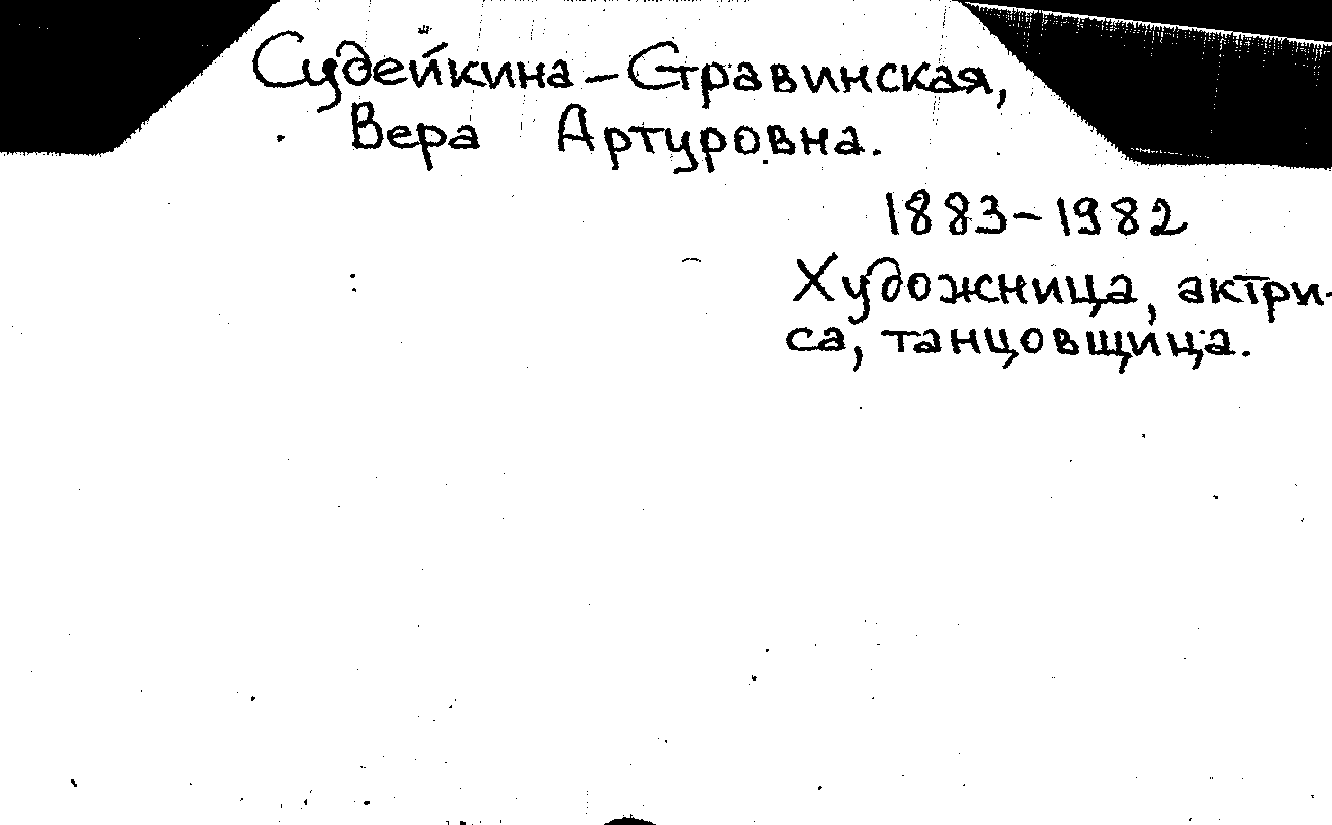 Судейкина-Стравинская,
Вера Артуровна.
1883-1982
Художница, актри-
са, танцовщица.